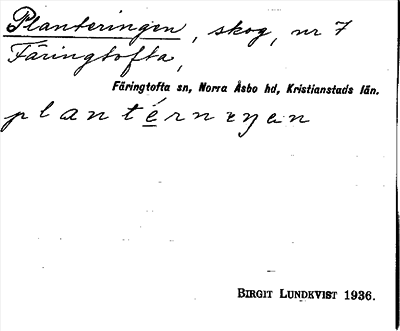 Planteringen, skog, nr 7
Färingtofta,
Färingtofta sn, Norra Åsbo hd, Kristianstads län.
plantérnŋen
BIRGIT LUNDKVIST 1936.